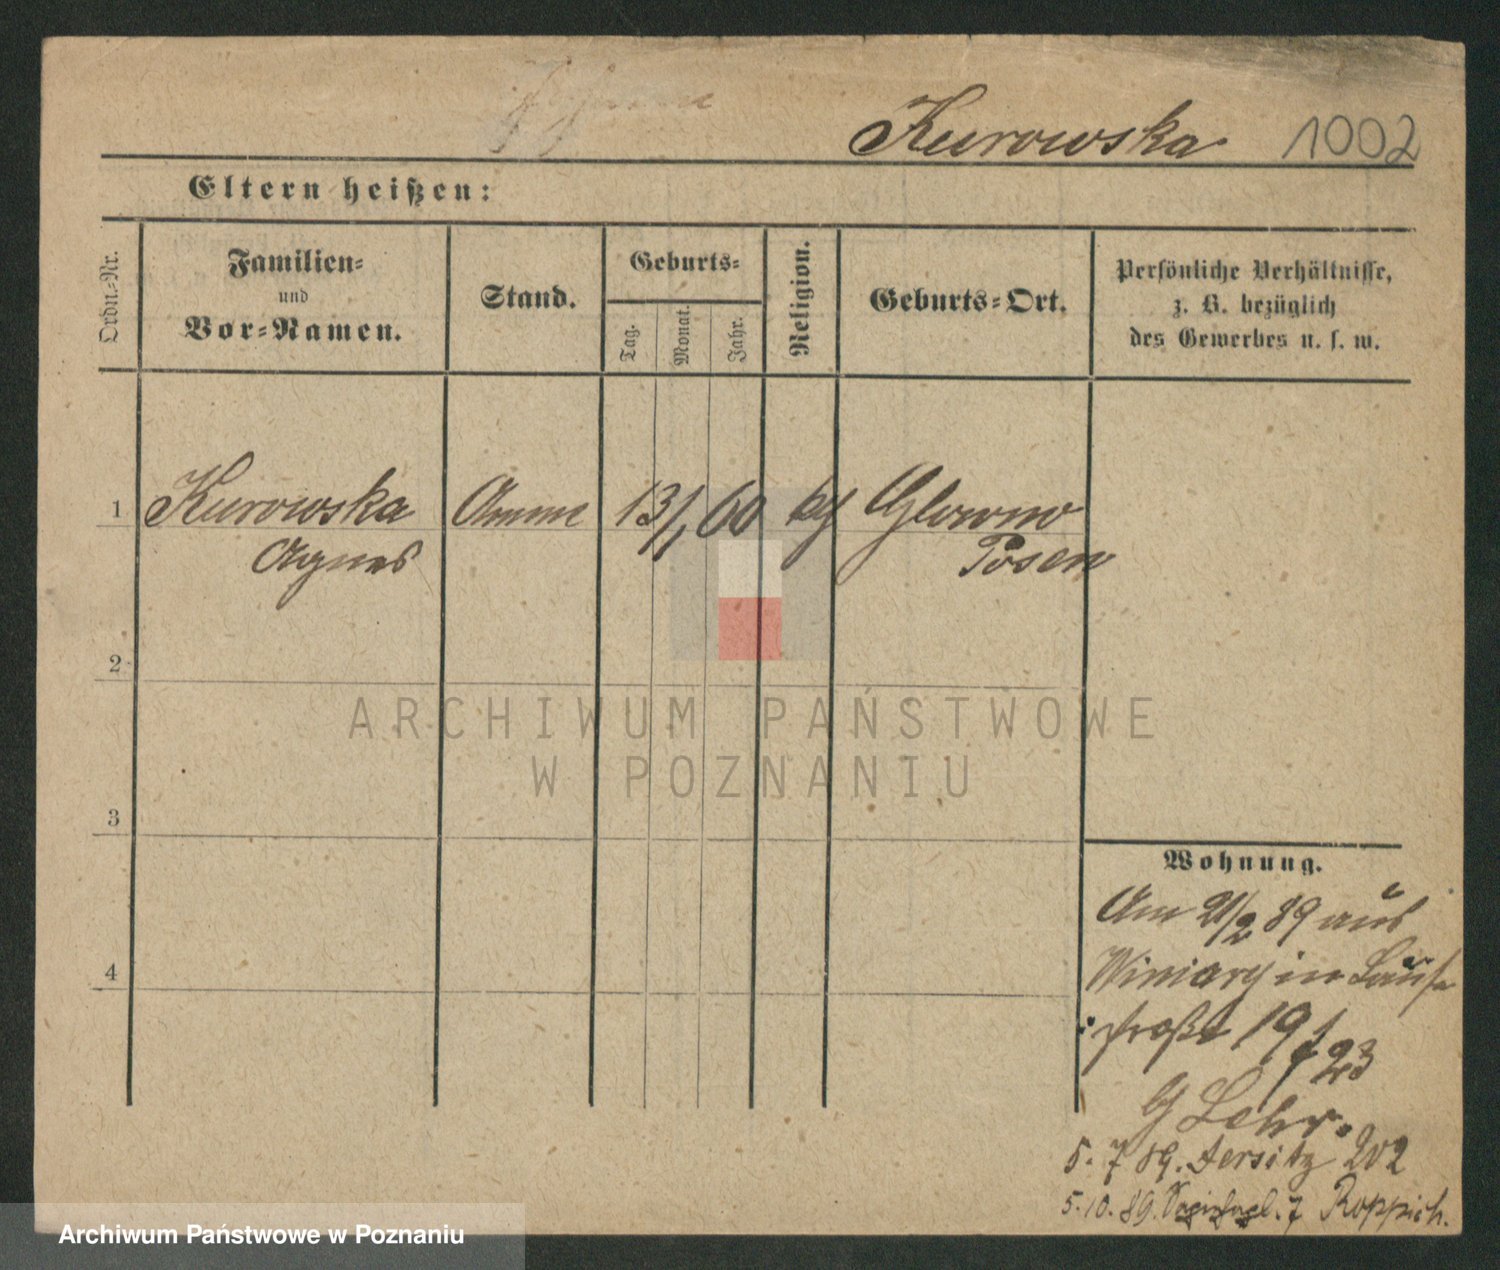 Kurowska 1002
Eltern heißen:
Ordn.-Nr.
Familien-
und
Vor-Namen.
Stand.
Geburts-
Tag.
Monat.
Jahr.
Religion.
Geburts-Ort.
Persönliche Verhältnisse,
z. B. bezüglich
des Gewerbes u. s. w.
1 Kurowska Amme 13/1 60 kg Glowno
Agnes Posen
2
3
4
ARCHIWUM PAŃSTWOWE
W POZNANIU
Wohnung.
Am 21/2 89 aus
Winiary in
straße 19
23
G Lehr.
5. 7 89. Jersitz 202
5. 10. 89. 7 Roppich.
Archiwum Państwowe w Poznaniu